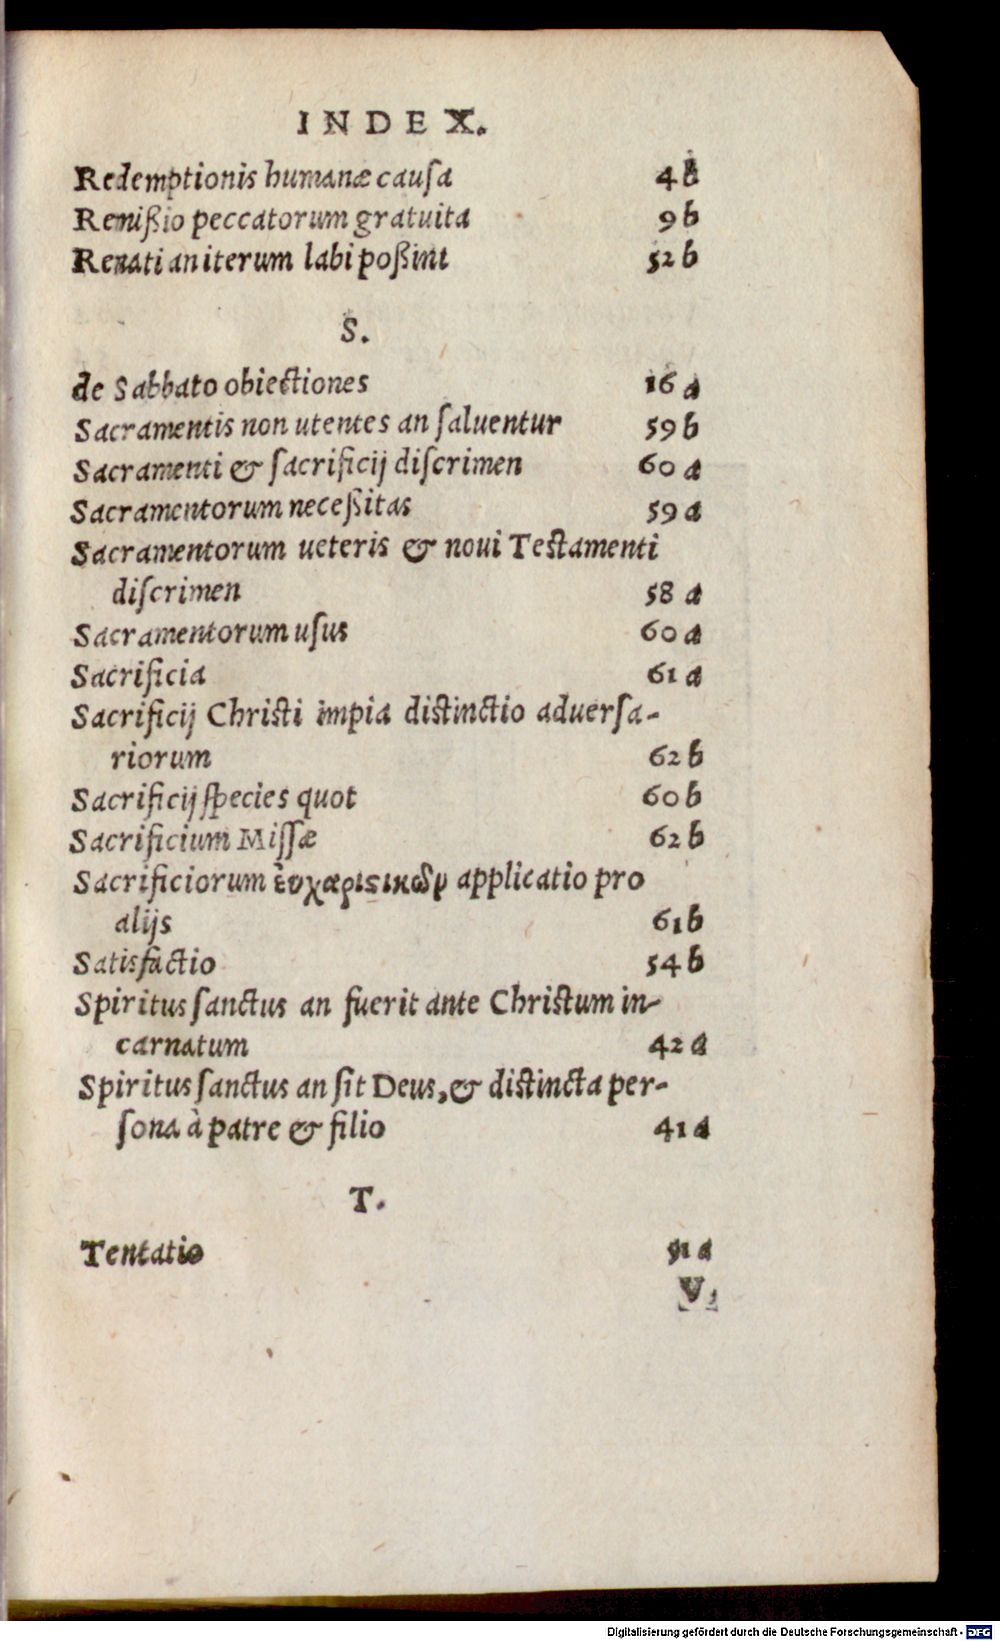 INDEX.
Redemptionis humanæ causa 4 b
Remißio peccatorum gratuita 9 b
Renati an iterum labi poßint 52 b
S.
de Sabbato obiectiones 16 a
Sacramentis non utentes an saluentur 59 b
Sacramenti & sacrificij discrimen 60 a
Sacramentorum neceßitas 59 a
Sacramentorum ueteris & noui Testamenti
discrimen 58 a
Sacramentorum usus 60 a
Sacrificia 61 a
Sacrificij Christi impia distinctio aduersa-
riorum 62 b
Sacrificij species quot 60 b
Sacrificium Missæ 62 b
Sacrificiorum ἐυχαριστικῶν applicatio pro
alijs 61 b
Satisfactio 54 b
Spiritus sanctus an fuerit ante Christum in-
carnatum 42 a
Spiritus sanctus an sit Deus, & distincta per-
sona à patre & filio 41 a
T.
Tentatio 91 a
V.
Digitalisierung gefördert durch die Deutsche Forschungsgemeinschaft - DFG